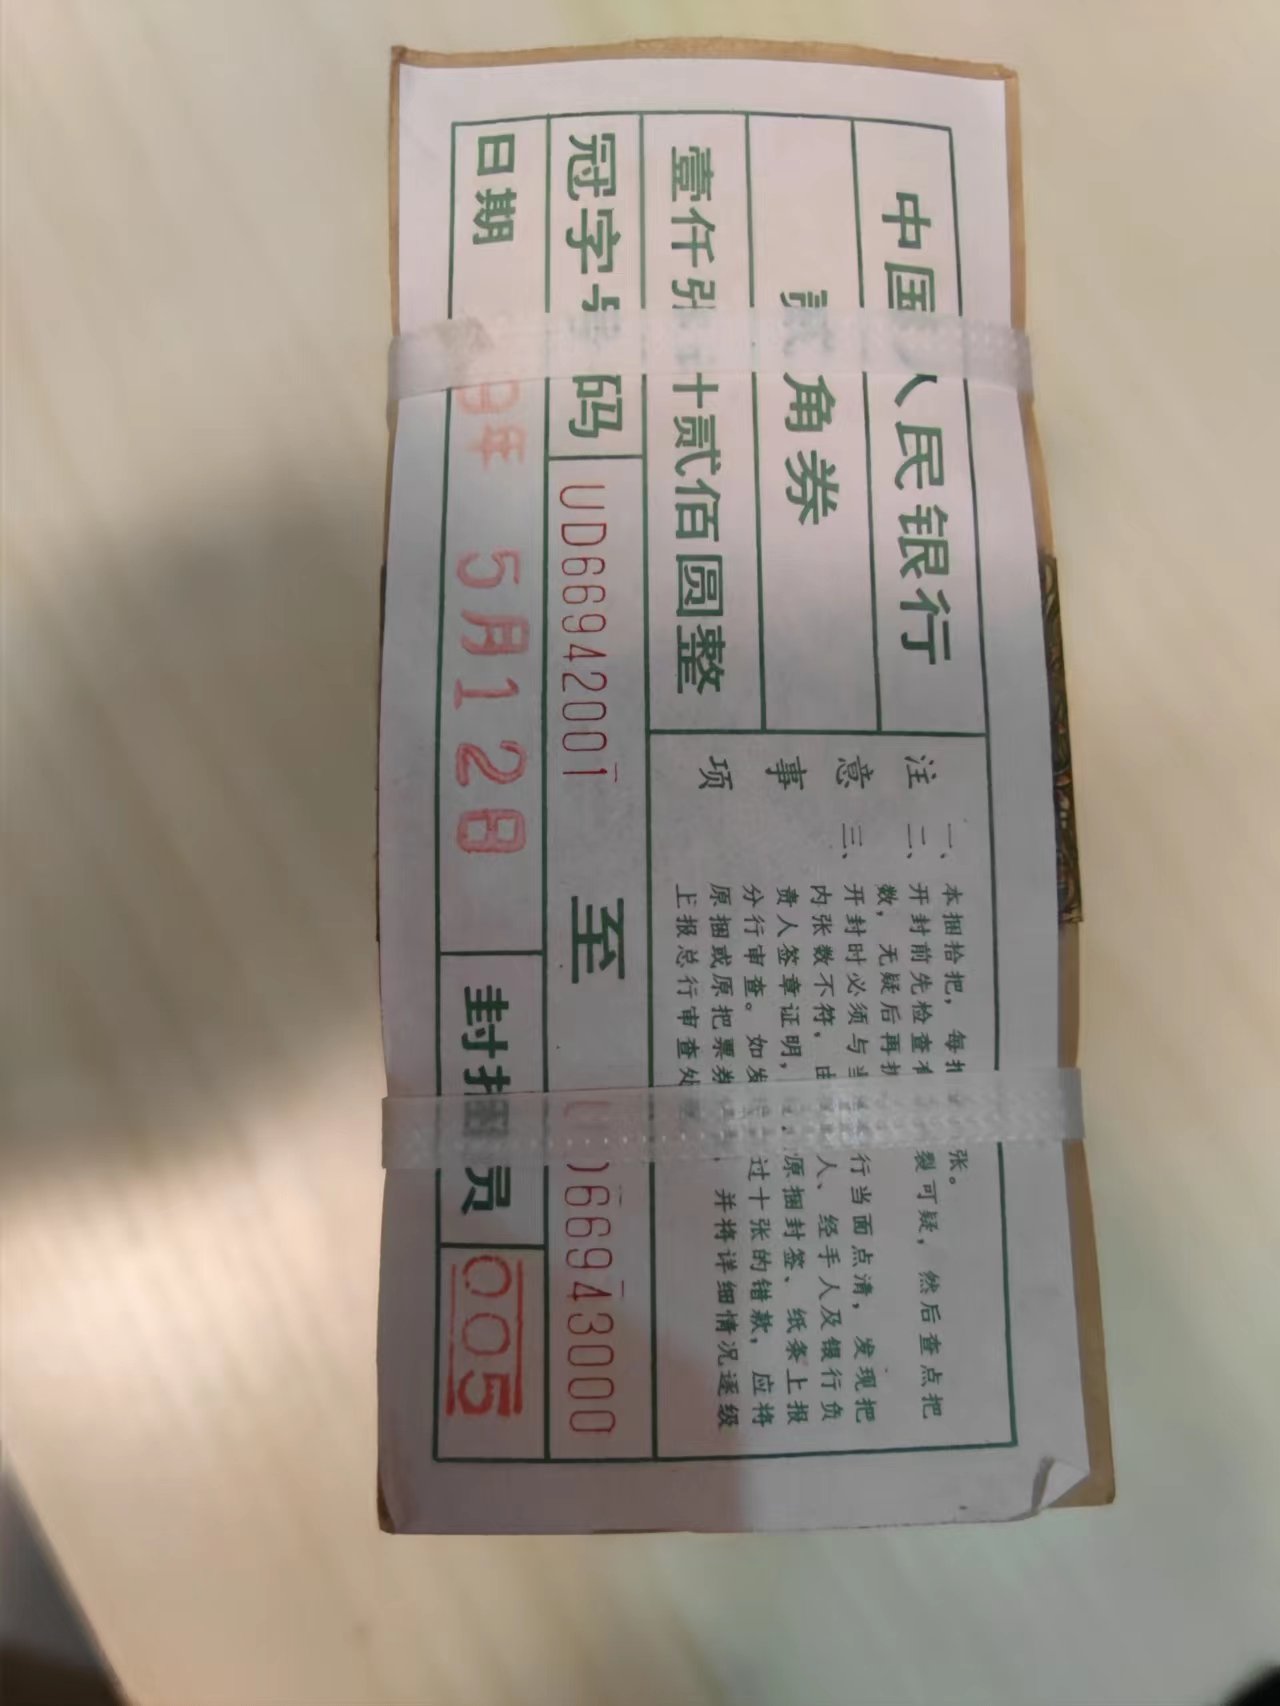 中国人民银行
贰角券
壹仟张计贰佰圆整
冠字号码 UD66942001 至 UD66943000
日期 9年 5月12日 封捆员 005
注意事项
一、本捆拾把，每把 张。
二、开封前先检查有 裂可疑，然后查点把
数，无疑后再
三、开封时必须与 行当面点清，发现把
内张数不符，由 人、经手人及银行负
责人签章证明， 原捆封签、纸条上报
分行审查。如发 过十张的错款，应将
原捆或原把票券 ，并将详细情况逐级
上报总行审查处